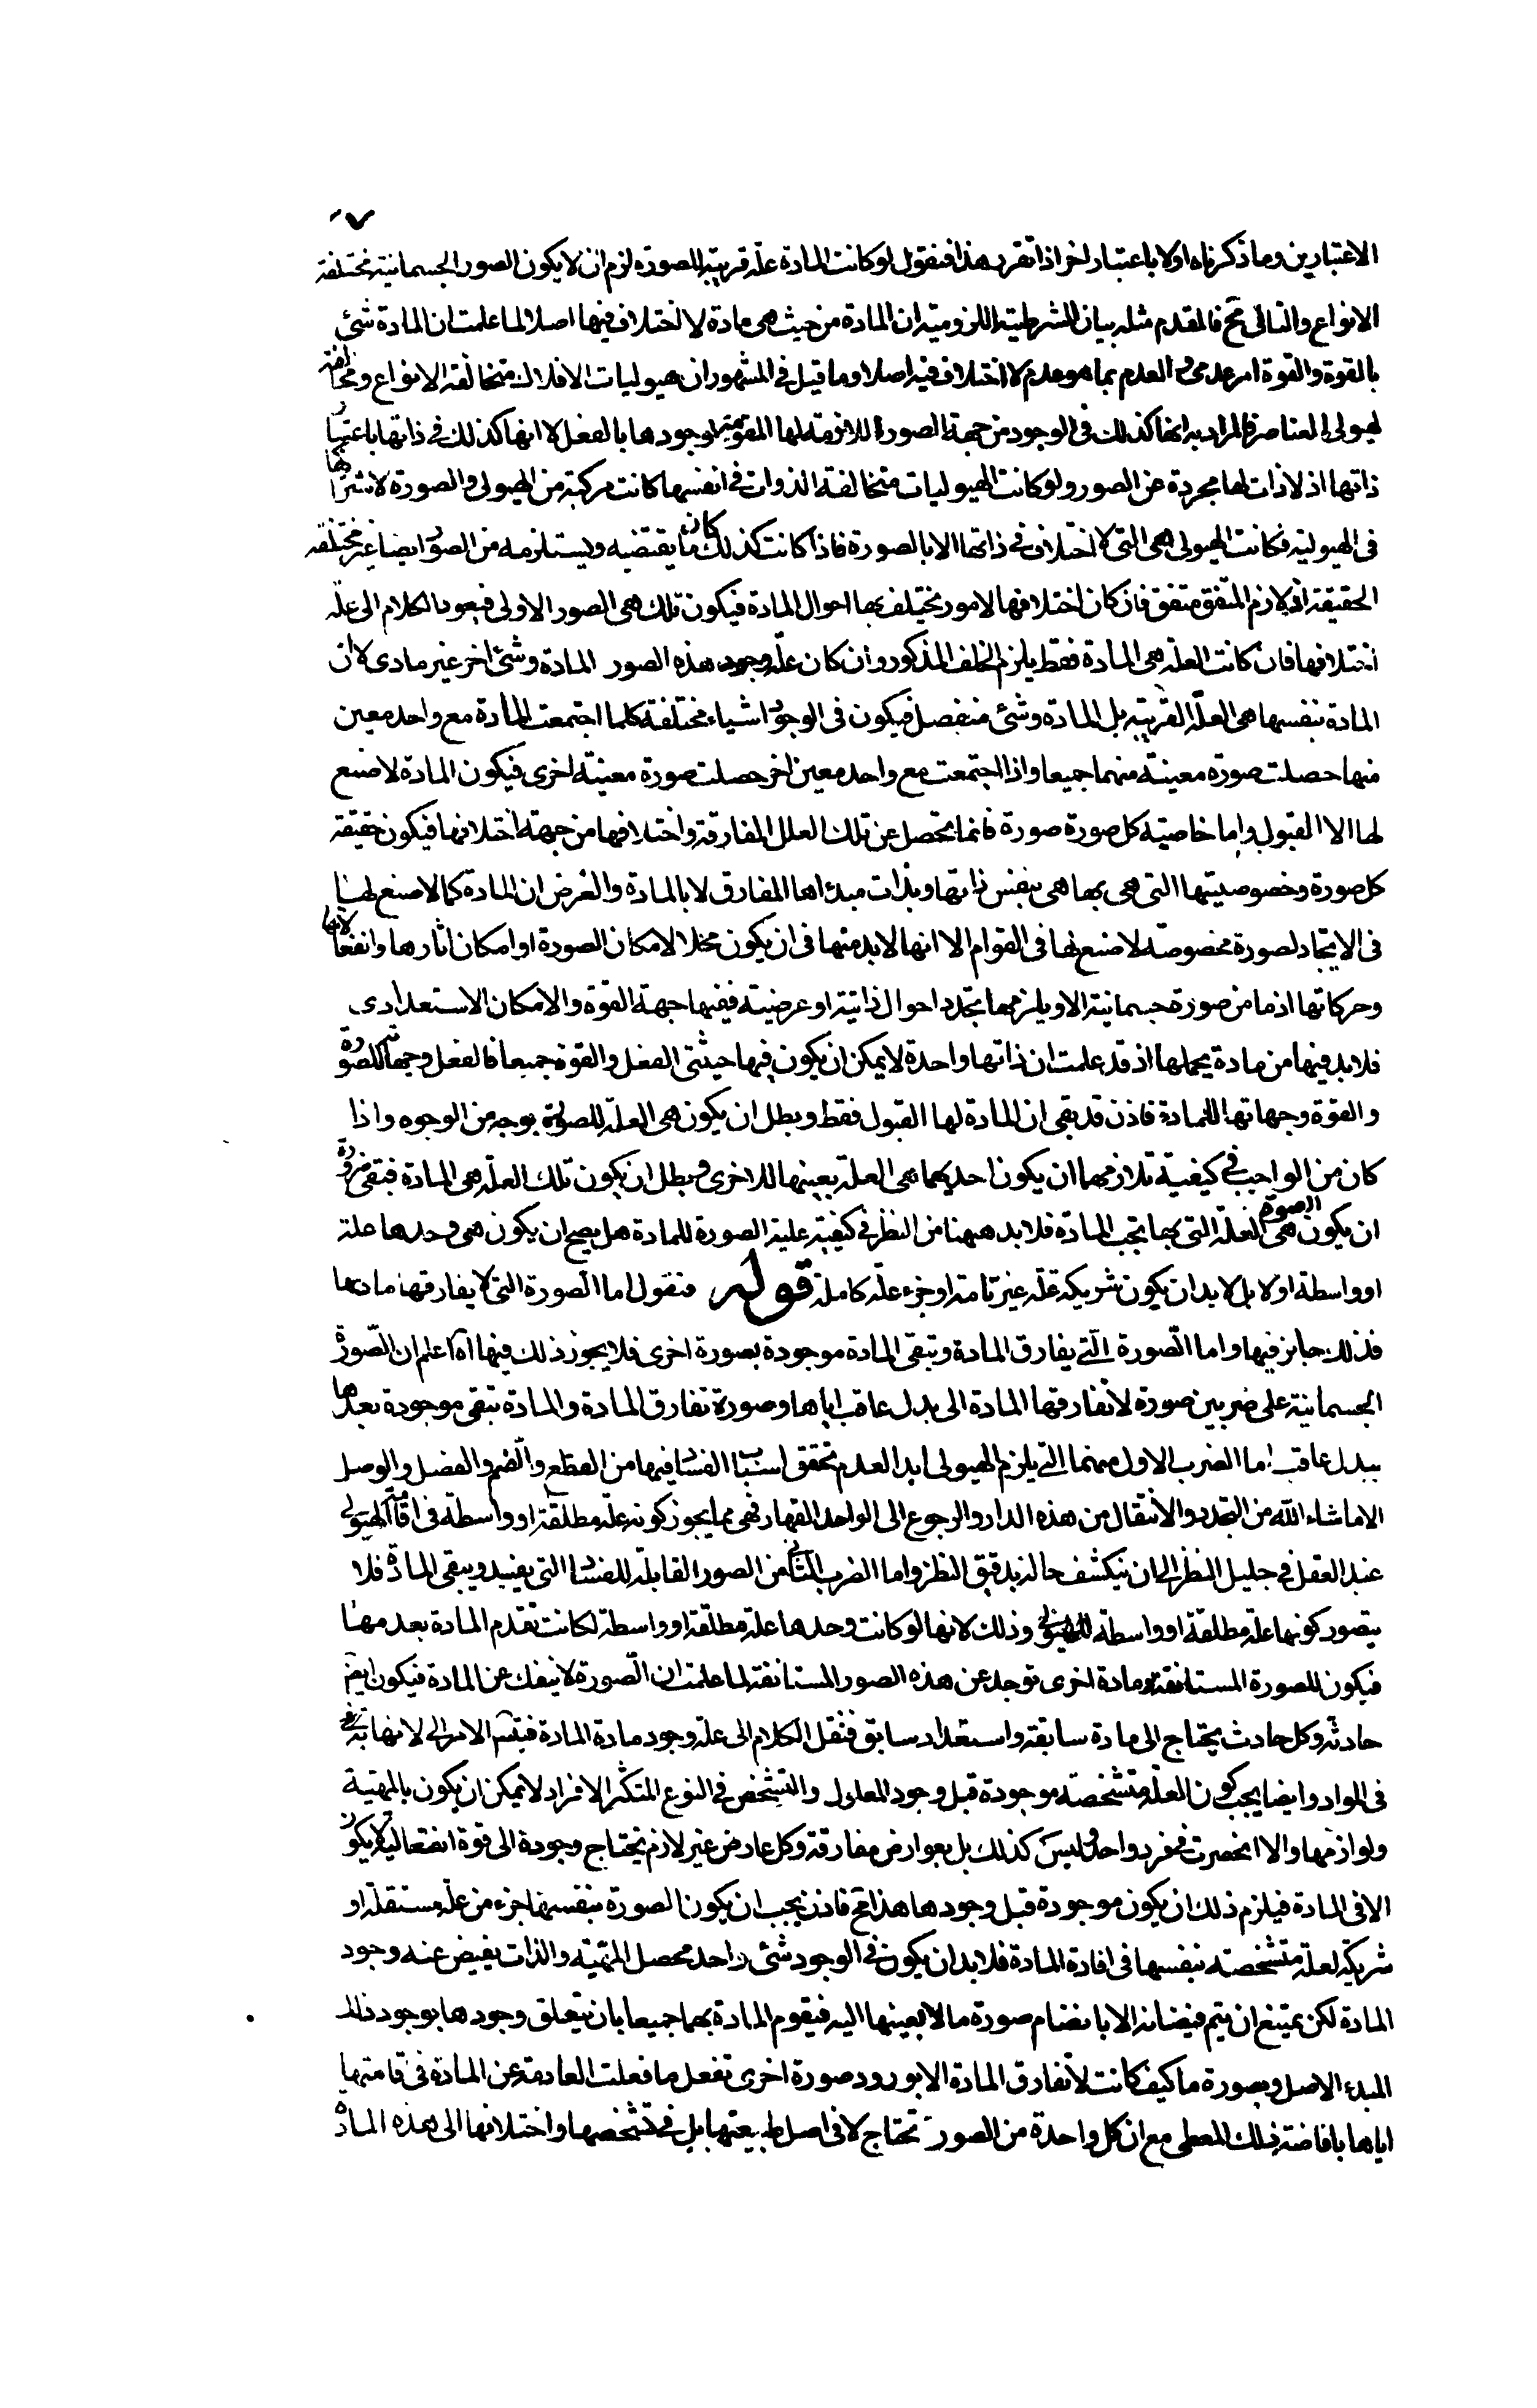 ٧
الاعتبارين وما ذكرناه اولا باعتبار اخر اذا تقرر هذا فنقول لو كانت المادة علة قريبة للصورة لزم ان لا يكون الصور الجسمانية مختلفة
الانواع والتالى مح فالمقدم مثله بيان الشرطية اللزومية ان المادة من حيث هى مادة لا اختلاف فيها اصلا لما علمت ان المادة شئ
بالقوة والقوة امر عدمى و العدم بما هو عدم لا اختلاف فيه اصلا وما قيل فى المشهور ان هيوليات الافلاك متخالفة الانواع ومخالفة
لهيولى العناصر فالمراد به انها كذلك فى الوجود من جهة الصورة اللازمة لها المقومة لوجودها بالفعل لا انها كذلك فى ذاتها باعتبار
ذاتها اذ لا ذات لها مجردة عن الصور ولو كانت الهيوليات متخالفة الذوات فى انفسها كانت مركبة من الهيولى والصورة لاشتراكها
فى الهيولية فكانت الهيولى هى التى لا اختلاف فى ذاتها الا بالصورة فاذا كانت كذلك كان ما يقتضيه ويستلزمه من الصور ايضا غير مختلفة
الحقيقة اذ لازم المتفق متفق فان كان اختلافها لامور يختلف بها احوال المادة فيكون تلك هى الصور الاولى فيعود الكلام الى علة
اختلافها فان كانت العلة هى المادة فقط يلزم الخلف المذكور وان كان علة وجود هذه الصور المادة وشئ اخر غير مادى لا ان
المادة بنفسها هى العلة القريبة بل المادة وشئ منفصل فيكون فى الوجود اشياء مختلفة كلما اجتمعت المادة مع واحد معين
منها حصلت صورة معينة منهما جميعا واذا اجتمعت مع واحد معين اخر حصلت صورة معينة اخرى فيكون المادة لا صنع
لها الا القبول واما خاصية كل صورة صورة فانما يحصل عن تلك العلل المفارقة واختلافها من جهة اختلافها فيكون حقيقة
كل صورة وخصوصيتها التى هى بها هى بنفس ذاتها وبذات مبدئها المفارق لا بالمادة والغرض ان المادة كما لا صنع لها
فى الايجاد لصورة مخصوصة لا صنع لها فى القوام الا انها لابد منها فى ان يكون محلا لامكان الصورة او امكان اثارها وانفعالاتها
وحركاتها اذ ما من صورة جسمانية الا ويلزمها تجدد احوال ذاتية او عرضية ففيها جهة القوة والامكان الاستعدادى
فلابد فيها من مادة يحملها اذ قد علمت ان ذاتها واحدة لا يمكن ان يكون فيها حيثيتى الفعل والقوة جميعا فالفعل وجهاته للصورة
والقوة وجهاتها للمادة فاذن قد بقى ان المادة لها القبول فقط وبطل ان يكون هى العلة للصورة بوجه من الوجوه واذا
كان من الواجب فى كيفية تلازمهما ان يكون احديهما هى العلة بعينها للاخرى وبطل ان يكون تلك العلة هى المادة فبقى ضرورة
ان يكون الصورة هى العلة التى بها يجب المادة فلابد ههنا من النظر فى كيفية علية الصورة للمادة هل يصح ان يكون هى وحدها علة
او واسطة اولا بل لابد ان يكون شريكة علة غير تامة او جزء علة كاملة قوله فنقول اما الصورة التى لا يفارقها مادتها
فذلك جايز فيها واما الصورة التى يفارق المادة وتبقى المادة موجودة بصورة اخرى فلا يجوز ذلك فيها اه اعلم ان الصورة
الجسمانية على ضربين صورة لا تفارقها المادة الى بدل عاقب اياها وصورة تفارق المادة والمادة تبقى موجودة بعدها
ببدل عاقب اما الضرب الاول منهما التى يلزم الهيولى ابدا لعدم تحقق اسباب الفساد فيها من القطع والضم والفصل والوصل
الا ما شاء الله من التجدد والانتقال من هذه الدار والرجوع الى الواحد القهار فهى مما يجوز كونه علة مطلقة او واسطة فى اقامة الهيولى
عند العقل فى جليل النظر الى ان ينكشف حاله بدقيق النظر واما الضرب الثانى من الصور القابلة للفساد التى يفسد ويبقى المادة فلا
يتصور كونها علة مطلقة او واسطة للهيولى وذلك لانها لو كانت وحدها علة مطلقة او واسطة لكانت تقدم المادة بعدمها
فيكون للصورة المستانفة مادة اخرى توجد عن هذه الصور المستانفة لما علمت ان الصورة لا ينفك عن المادة فيكون ايض
حادثة وكل حادث يحتاج الى مادة سابقة واستعداد سابق فننقل الكلام الى علة وجود مادة المادة فيتسم الامر الى لا نهاية
فى المواد وايضا يجب كون العلة متشخصة موجودة قبل وجود المعلول والتشخص فى النوع المتكثر الافراد لا يمكن ان يكون بالمهية
ولوازمها والا انحصرت فى فرد واحد وليس كذلك بل بعوارض مفارقة وكل عارض غير لازم يحتاج وجودة الى قوة انفعالية لا يكون
الا فى المادة فيلزم ذلك ان يكون موجودة قبل وجودها هذا مح فاذن يجب ان يكون الصورة بنفسها جزء من علة مستقلة او
شريكة لعلة متشخصة بنفسها فى افادة المادة فلابد ان يكون فى الوجود شئ واحد محصل المهية والذات يفيض عنه وجود
المادة لكن يمتنع ان يتم فيضانه الا بانضام صورة ما لا بعينها اليه فيقوم المادة بهما جميعا بان يتعلق وجودها بوجود ذلك
المبدء الاصل وبصورة ما كيف كانت لا تفارق المادة الا بورود صورة اخرى تفعل ما فعلت العادمة عن المادة فى اقامتها
اياها بافاضة ذلك المعطى مع ان كل واحدة من الصور تحتاج لا فى اصل طبيعتها بل فى تشخصها واختلافها الى هذه المادة